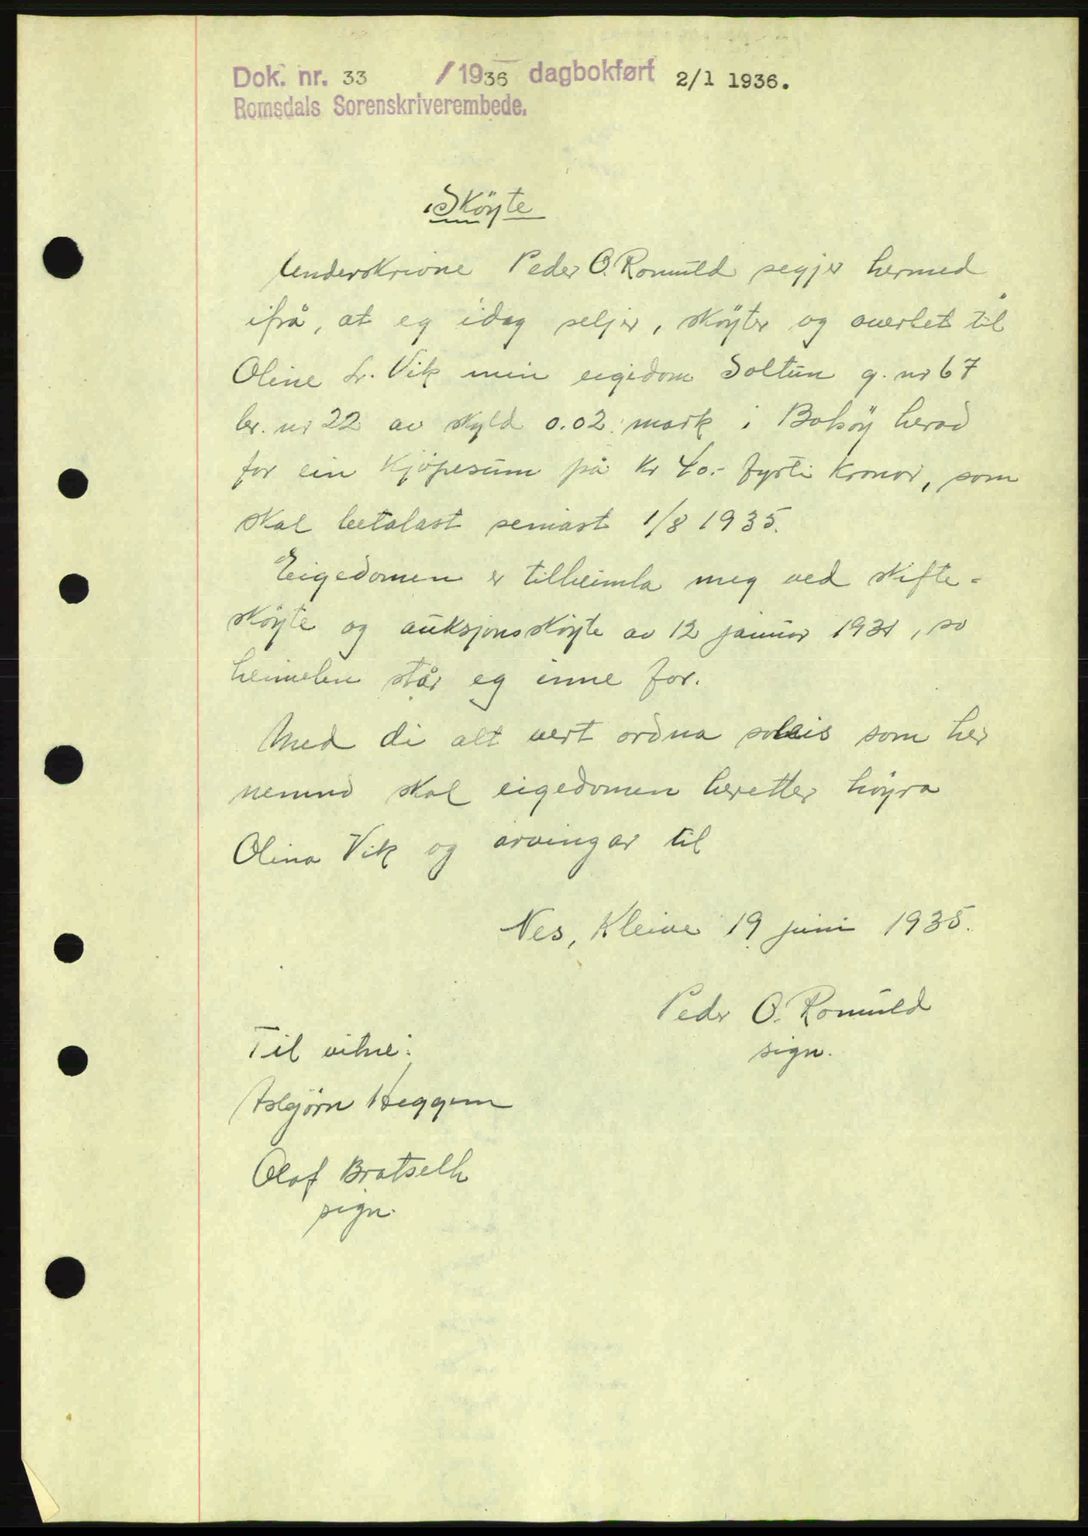 Dok. nr. 33 /1936 dagbokført 2/1 1936.
Romsdals Sorenskriverembede.
Sköyte
Underskrivne Peder O. Romuld segjer hermed
ifrå, at eg idag seljer, sköyter og overlet til
Oline L. Vik min eigedom Soltun g. nr 67
br. nr 22 av skyld 0.02 mark i Bolsöy herad
for ein kjöpesum på kr 40.- fyrti kronor, som
skal betalast seinast 1/8 1935.
Eigedomen er tilheimla meg ved skifte-
sköyte og auksjonssköyte av 12 januar 1931, so
heimelen står eg inne for.
Med di alt vert ordna soleis som her
nemnd skal eigedomen heretter höyra
Olina Vik og arvingar til
Nes, Kleive 19 juni 1935.
Peder O. Romuld
sign.
Til vitne:
Asbjörn Heggem
Olaf Bratseth
sign.